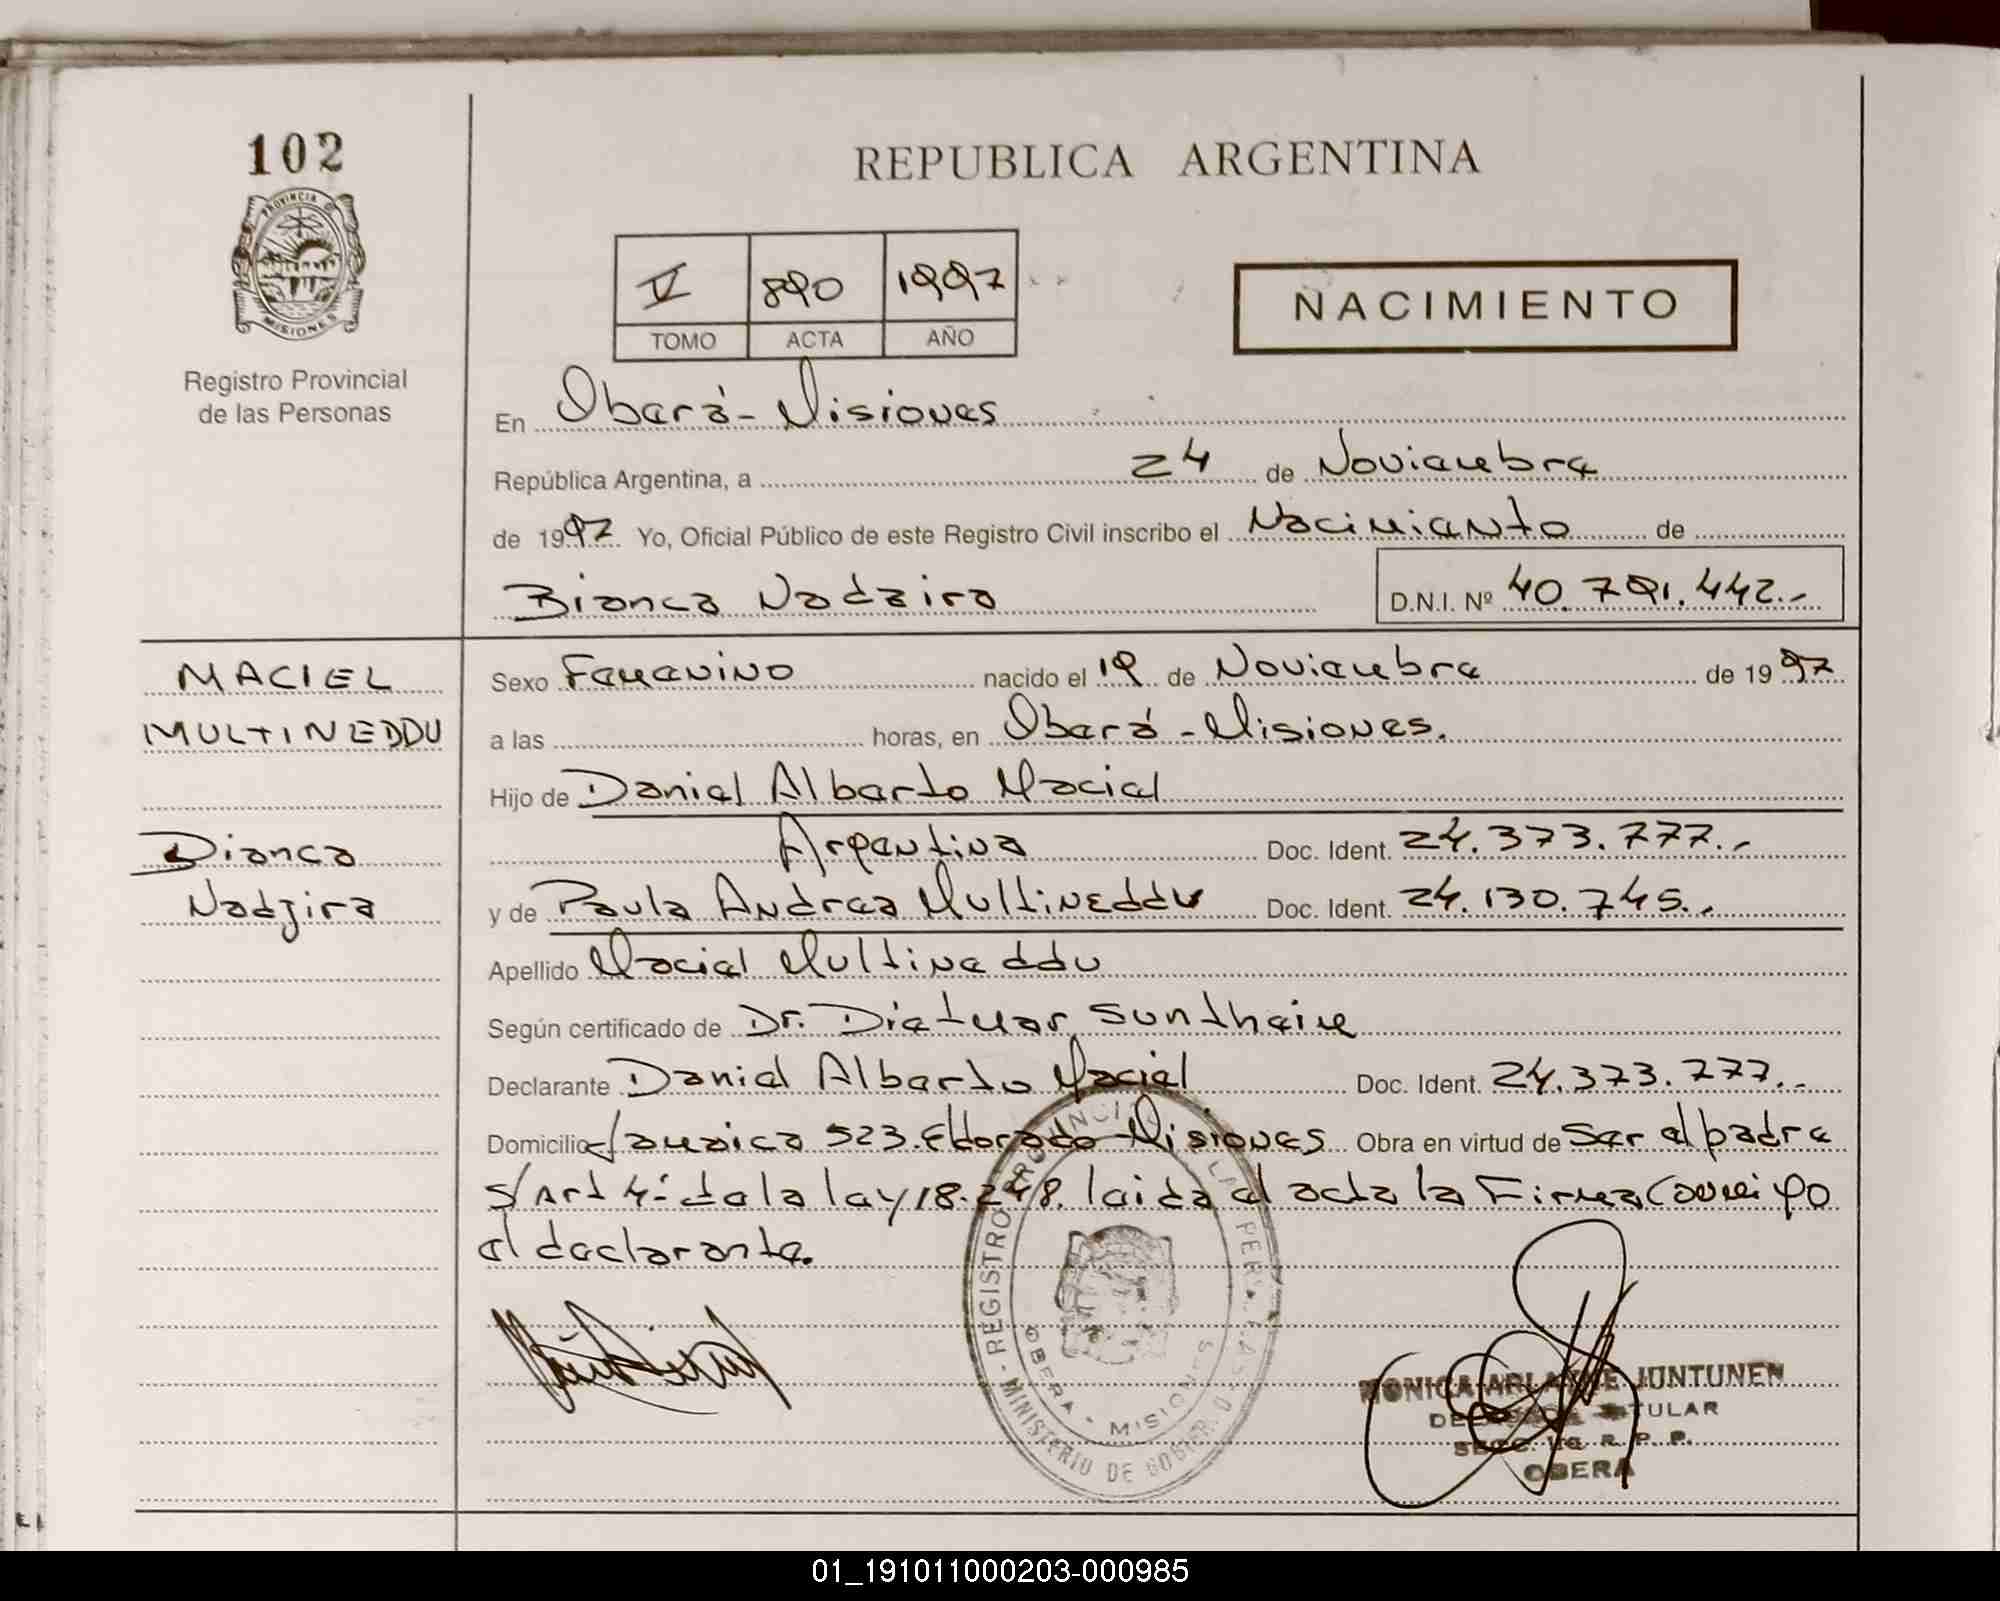 102
REPUBLICA ARGENTINA
PROVINCIA D
MISIONES
V 890 1997
TOMO ACTA AÑO
NACIMIENTO
Registro Provincial
de las Personas
En Oberá - Misiones
República Argentina, a 24 de Noviembre
de 1997. Yo, Oficial Público de este Registro Civil inscribo el Nacimiento de
Bianca Nadzira D.N.I. Nº 40.791.442.-
MACIEL
MULTINEDDU
Bianca
Nadjira
Sexo Femenino nacido el 19 de Noviembre de 1997
a las horas, en Oberá - Misiones.
Hijo de Daniel Alberto Maciel
Argentina Doc. Ident. 24.373.777.-
y de Paula Andrea Multineddu Doc. Ident. 24.130.745.-
Apellido Maciel Multineddu
Según certificado de Dr. Dietmar Suntheim
Declarante Daniel Alberto Maciel Doc. Ident. 24.373.777.-
Domicilio Jamaica 523. Eldorado - Misiones Obra en virtud de Ser el padre
s/Art 4- de la ley 18.248. leida el acta la Firma Conmigo
el declarante.
REGISTRO PROVINCI LA PER LAS
OBERA - MISIONES
MINISTERIO DE GOBIER O
MONICA ARLA E JUNTUNEN
DE TULAR
SECC. R. P. P.
OBERA
01_191011000203-000985